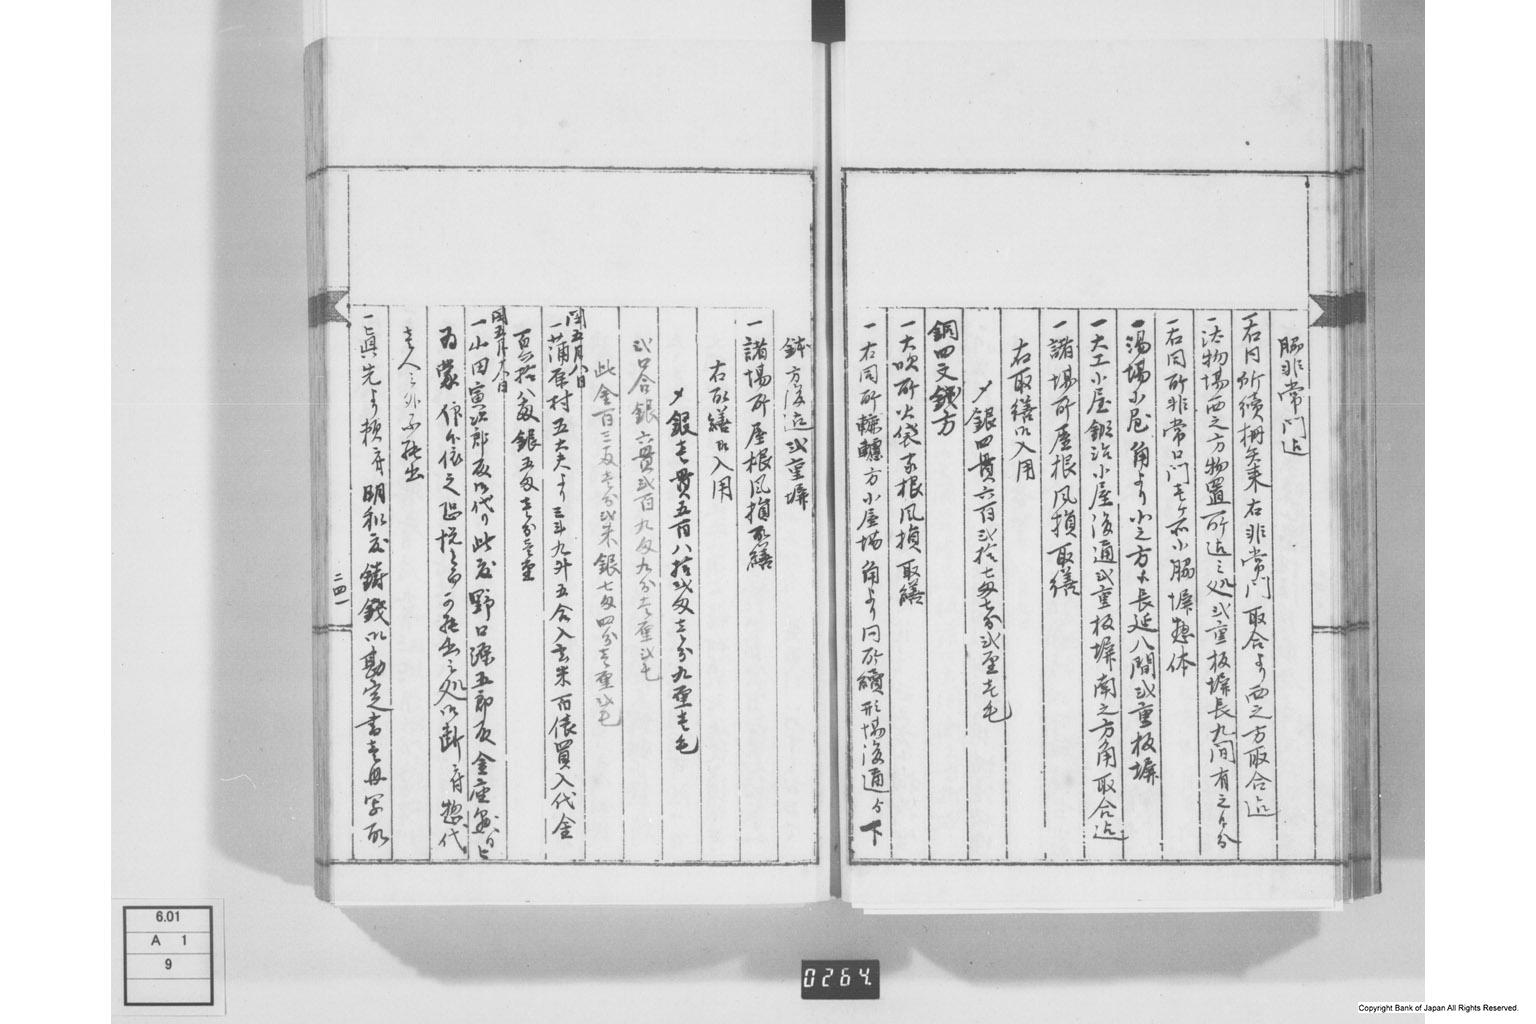 脇非常門迄
一右同所續柵矢来右非常門取合より西之方取合迄
一法物場西之方物置所迄之処弐重板塀長九間有之候分
一右同所非常口門壱ヶ所小脇塀惣体
一湯場小屋角より小之方大長延八間弐重板塀
一大工小屋鍛冶小屋後通弐重板塀南之方角取合迄
一諸場所屋根風損取繕
右取繕御入用
〆銀四貫六百弐拾七匁七分弐厘壱毛
銅四文銭方
一大吹所火袋家根風損取繕
一右同所轆轤方小屋場角より同所續形場後通り下
銭方後迄弐重塀
一諸場所屋根風損取繕
右取繕御入用
〆銀壱貫五百八拾弐匁壱分九厘壱毛
弐口合銀六貫弐百九匁九分壱厘弐毛
此金百三両壱分弐朱銀七匁四分壱厘弐毛
閏五月八日
一蒲原村五太夫より三斗九升五合入玄米百俵買入代金
百六拾八匁銀五匁壱分壱厘
閏五月十八日
一小田寅次郎殿御代り此度野口源五郎殿金座
為蒙仰候依之恐悦之節可罷出之処御断ニ付惣代
壱人之外不罷出
一眞先より頼ニ付明和度鋳錢御勘定書壱冊写取
二四一
6.01
A 1
9
0264.
Copyright Bank of Japan All Rights Reserved.